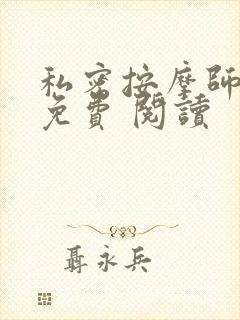 私密按摩師
免費閱讀
聶永兵